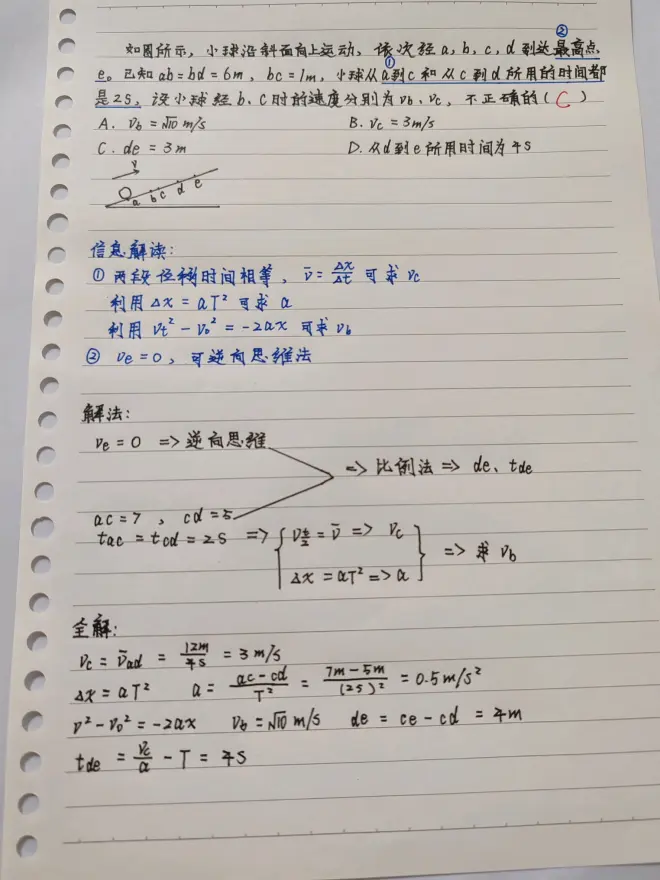 ②
如图所示，小球沿斜面向上运动，依次经a，b，c，d到达最高点
①
e。已知ab=bd=6m，bc=1m，小球从a到c和从c到d所用的时间都
是2s，设小球经b、c时的速度分别为vb、vc，不正确的（C）
A. vb=√10 m/s B. vc=3m/s
C. de=3m D. 从d到e所用时间为4s
v
a b c d e
信息解读：
① 两段位移时间相等，v̄=Δx/Δt 可求 vc
利用 Δx=aT² 可求 a
利用 vt²-v₀²=-2ax 可求 vb
② ve=0，可逆向思维法
解法：
ve=0 => 逆向思维
=> 比例法 => de、tde
ac=7，cd=5
tac=tcd=2s => { v t/2 = v̄ => vc
Δx=aT² => a } => 求 vb
全解：
vc=v̄ad=12m/4s=3m/s
Δx=aT² a=(ac-cd)/T²=(7m-5m)/(2s)²=0.5m/s²
v²-v₀²=-2ax vb=√10 m/s de=ce-cd=4m
tde=vc/a-T=4s